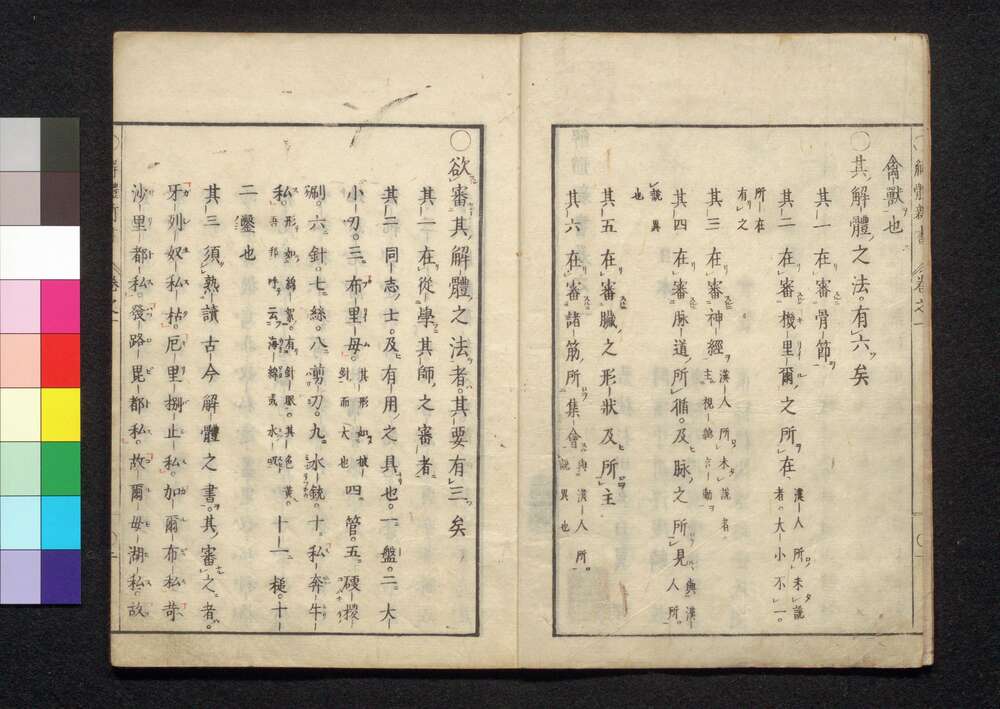 解體新書 卷之一
禽獸也
○其解體之法有六矣
其一在審骨節
其二在審機里爾之所在漢人所未說者大小不一
所在有之
其三在審神經漢人所未說者主視聽言動
其四在審脉道所循及脉之所見與漢人所說異
也
其五在審臟之形狀及所主
其六在審諸筋所集會與漢人所說異也
○欲審其解體之法者其要有三矣
其一在從學其師之審者
其二同志士及有用之具也一盤二大
小刃三布里毋其形如披剉而大也四管五硬㮇
刷六針七絲八剪刃九水銃十私奔牛
私形如綿絮有針眼其色黃吾邦呼云海綿或水
十一槌十
二鑿也
其三須熟讀古今解體之書其審之者
牙列奴私枯厄里捌止私加爾布私苛
沙里都私發路毘都私故爾毋湖私故